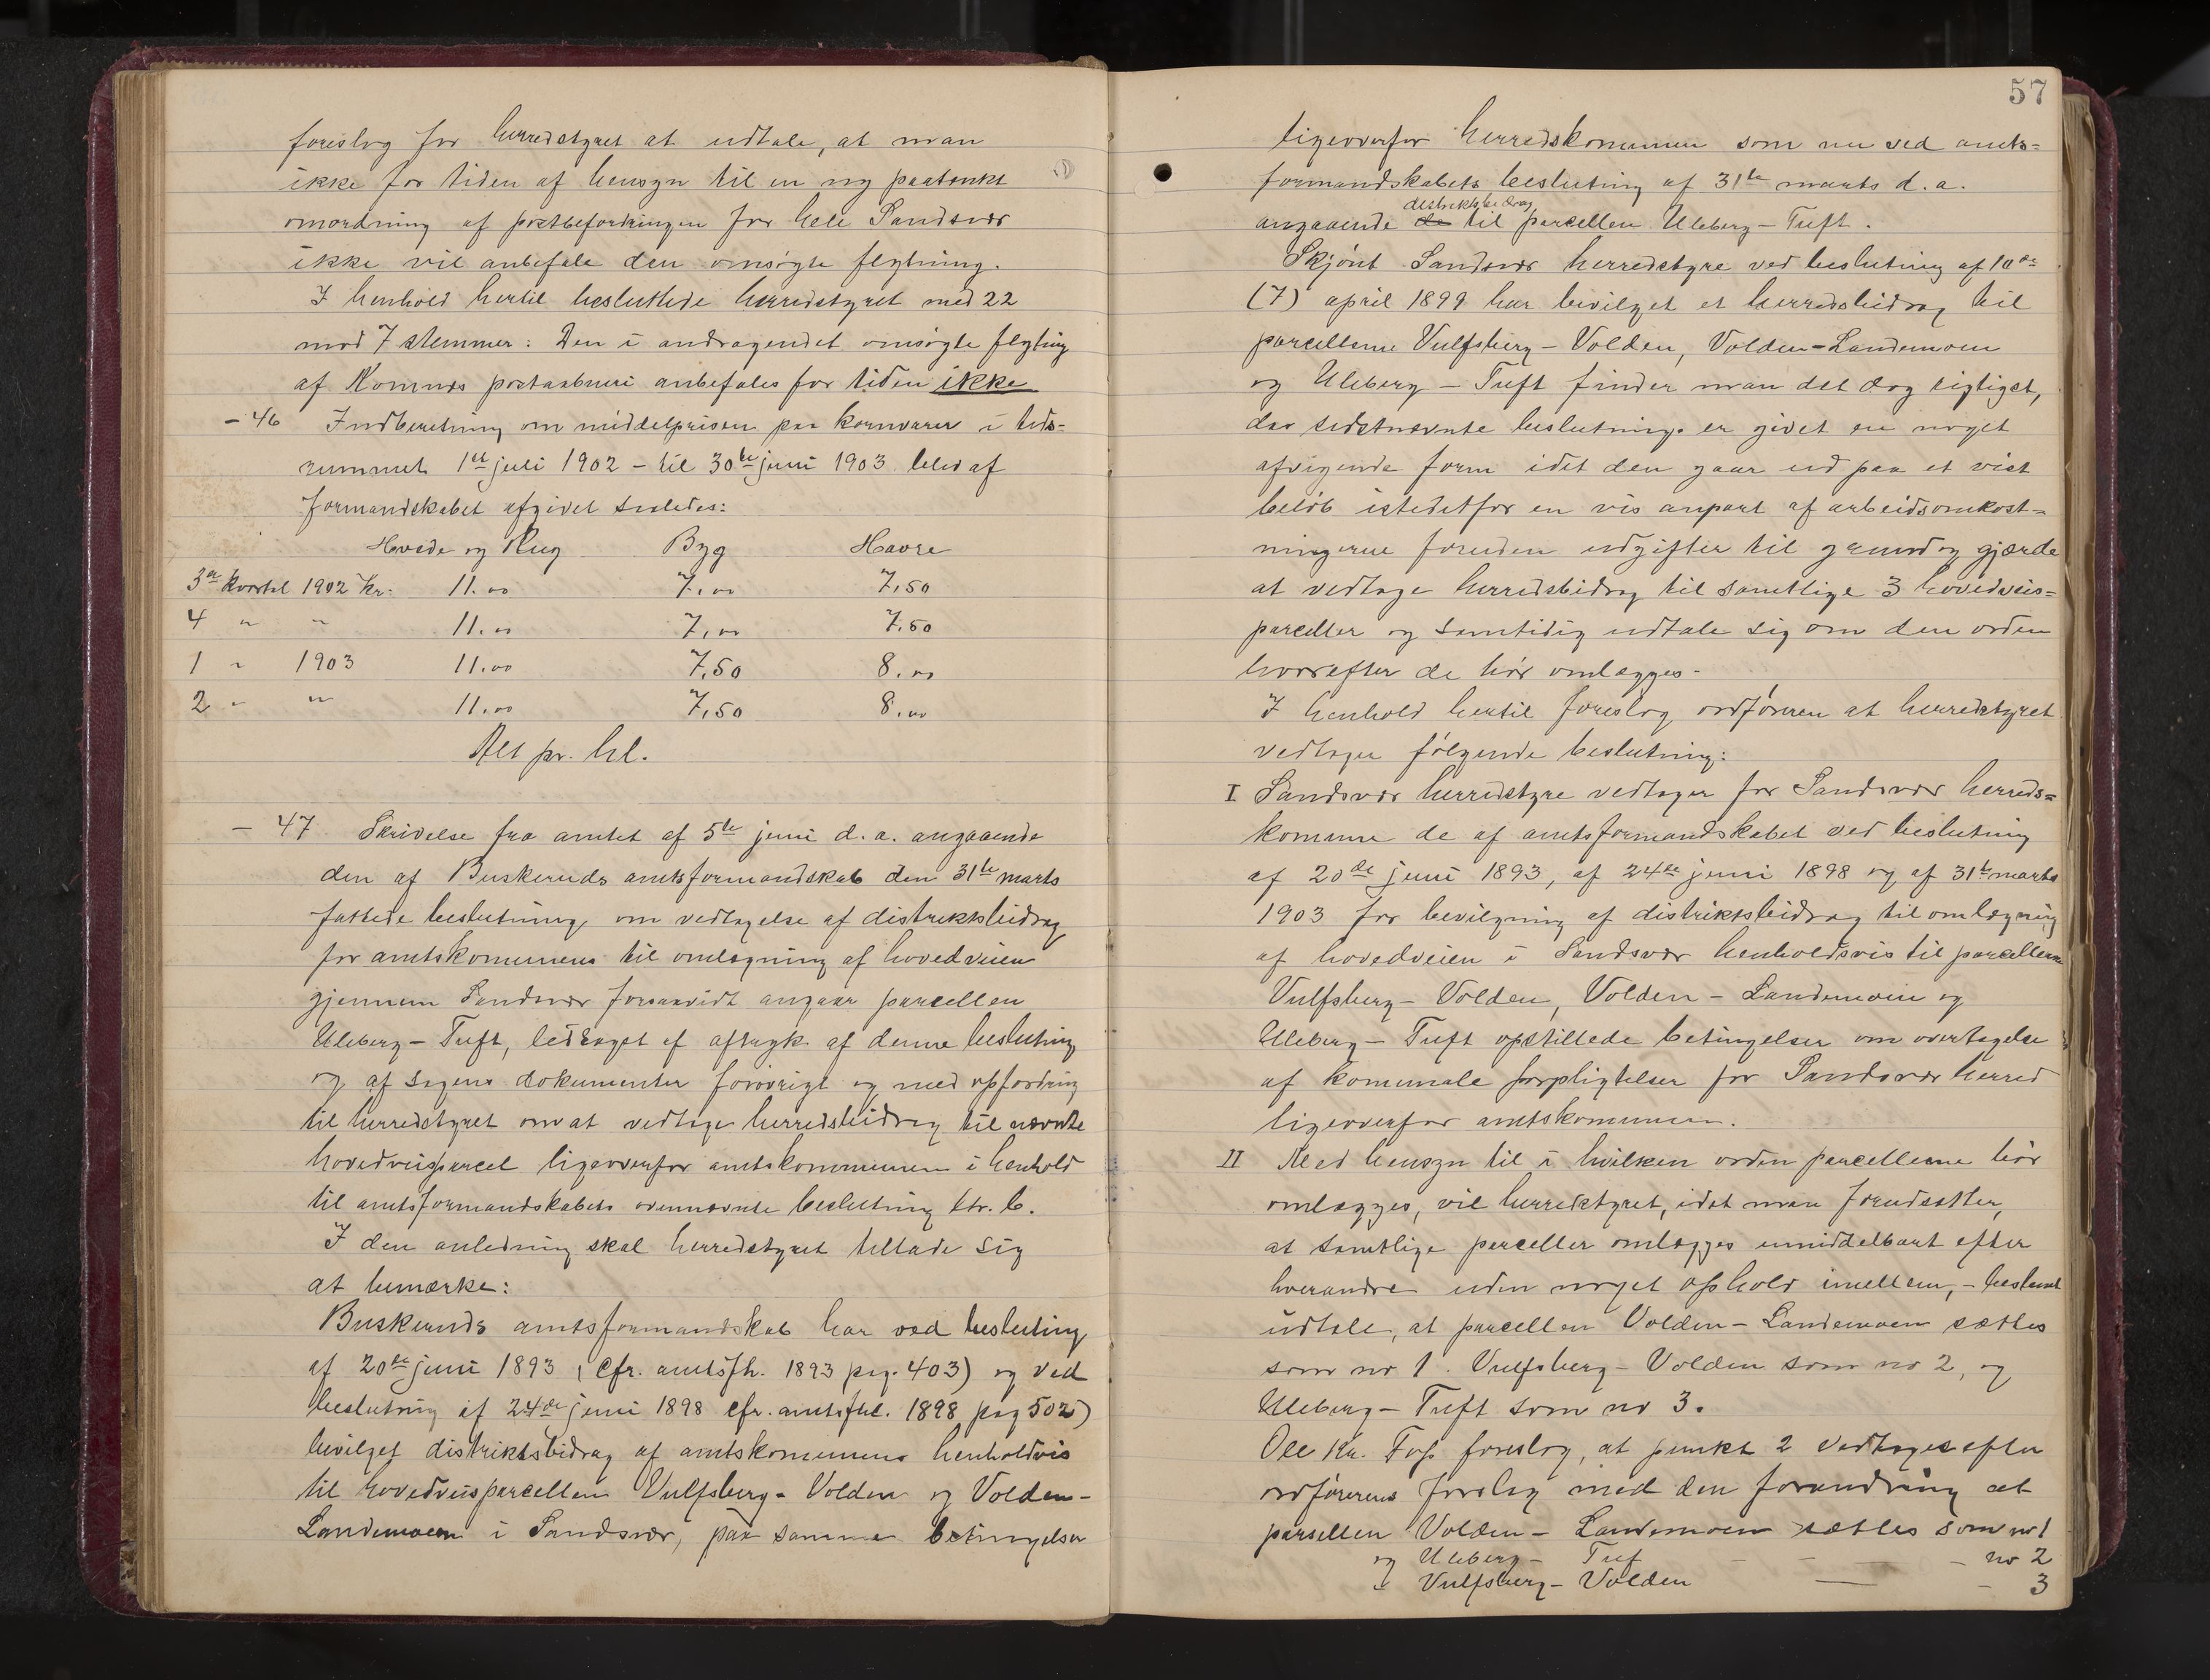 foreslog for herredstyret at udtale, at man
ikke for tiden af hensyn til en ny paatænkt
omordning af postbefordringen for hele Sandsvær
ikke vil anbefale den omsøgte flytning.
I henhold hertil besluttede herredstyret med 22
mod 7 stemmer: Den i andragendet omsøgte flytning
af Komnes postaabneri anbefales for tiden ikke
- 46 Indberetning om middelprisen paa kornvarer i tids-
rummet 1ste juli 1902 - til 30te juni 1903 blev af
formandskabet afgivet saaledes:
Hvede og Rug Byg Havre
3de kvartal 1902 Kr. 11.00 7.00 7,50
4 " " 11.00 7,00 7.50
1 " 1903 11.00 7,50 8.00
2 " " 11.00 7,50 8.00
Alt pr. hl.
- 47 Skrivelse fra amtet af 5te juni d. a. angaaende
den af Buskeruds amtsformandskab den 31te marts
fattede beslutning om vedtagelse af distriktsbidrag
for amtskommunens til omlægning af hovedveien
gjennem Sandsvær forsaavidt angaar parcellen
Uleberg - Tuft, ledsaget af aftryk af denne beslutning
og af sagens dokumenter forøvrigt og med opfordring
til herredstyret om at vedtage herredsbidrag til nævnte
hovedveisparcel ligeoverfor amtskommunen i henhold
til amtsformandskabets ovennævnte beslutning ltr. b.
I den anledning skal herredstyret tillade sig
at bemærke:
Buskeruds amtsformandskab har ved beslutning
af 20de juni 1893 (cfr. amtsfh. 1893 pag. 403) og ved
beslutning af 24de juni 1898 cfr. amtsfhl. 1898 pag 502)
bevilget distriktsbidrag af amtskomunens henholdvis
til hovedveisparcellen Vulfsberg - Volden og Volden -
Landemoen i Sandsvær, paa samme betingelser
57
ligeoverfor herredskommunen som nu ved amts-
formandskabets beslutning af 31te marts d. a.
distriktsbidrag
angaaende de til parcellen Uleberg - Tuft.
Skjønt Sandsvær herredstyre ved beslutning af 10de
(7) april 1899 har bevilget et herredsbidrag til
parcellerne Vulfsberg - Volden, Volden - Landemoen
og Uleberg - Tuft finder man det dog rigtigst,
da sidstnævnte beslutning er givet en noget
afvigende form idet den gaar ud paa et vist
beløb istedetfor en vis anpart af arbeidsomkost-
ningerne foruden udgifter til grund og gjærde
at vedtage herredsbidrag til samtlige 3 hovedveis-
parceller og samtidig udtale sig om den orden
hvorefter de bør omlægges.
I henhold hertil foreslog ordføreren at herredstyret
vedtager følgende beslutning:
I Sandsvær herredstyre vedtager for Sandsvær herreds-
komune de af amtsformandskabet ved beslutning
af 20de juni 1893, af 24de juni 1898 og af 31te marts
1903 for bevilgning af distriktsbidrag til omlægning
af hovedveien i Sandsvær henholdsvis til parcellerne
Vulfsberg - Volden, Volden - Landemoen og
Uleberg - Tuft opstillede betingelser om overtagelse
af komunale forpligtelser for Sandsvær herred
ligeoverfor amtskommunen.
II Med hensyn til i hvilken orden parcellerne bør
omlægges, vil herredstyret, idet man forudsætter,
at samtlige parceller omlægges umiddelbart efter
hverandre uden noget ophold imellem, - bestemt
udtale, at parcellen Volden - Landemoen sættes
som no 1. Vulfsberg - Volden som no 2, og
Uleberg - Tuft som no 3.
Ole Kr. Fos foreslog, at punkt 2 vedtages efter
ordførerens forslag med den forandring at
parsellen Volden - Landemoen sættes som no 1
og Uleberg - Tuf - - - no 2
" Vulfsberg - Volden - - 3